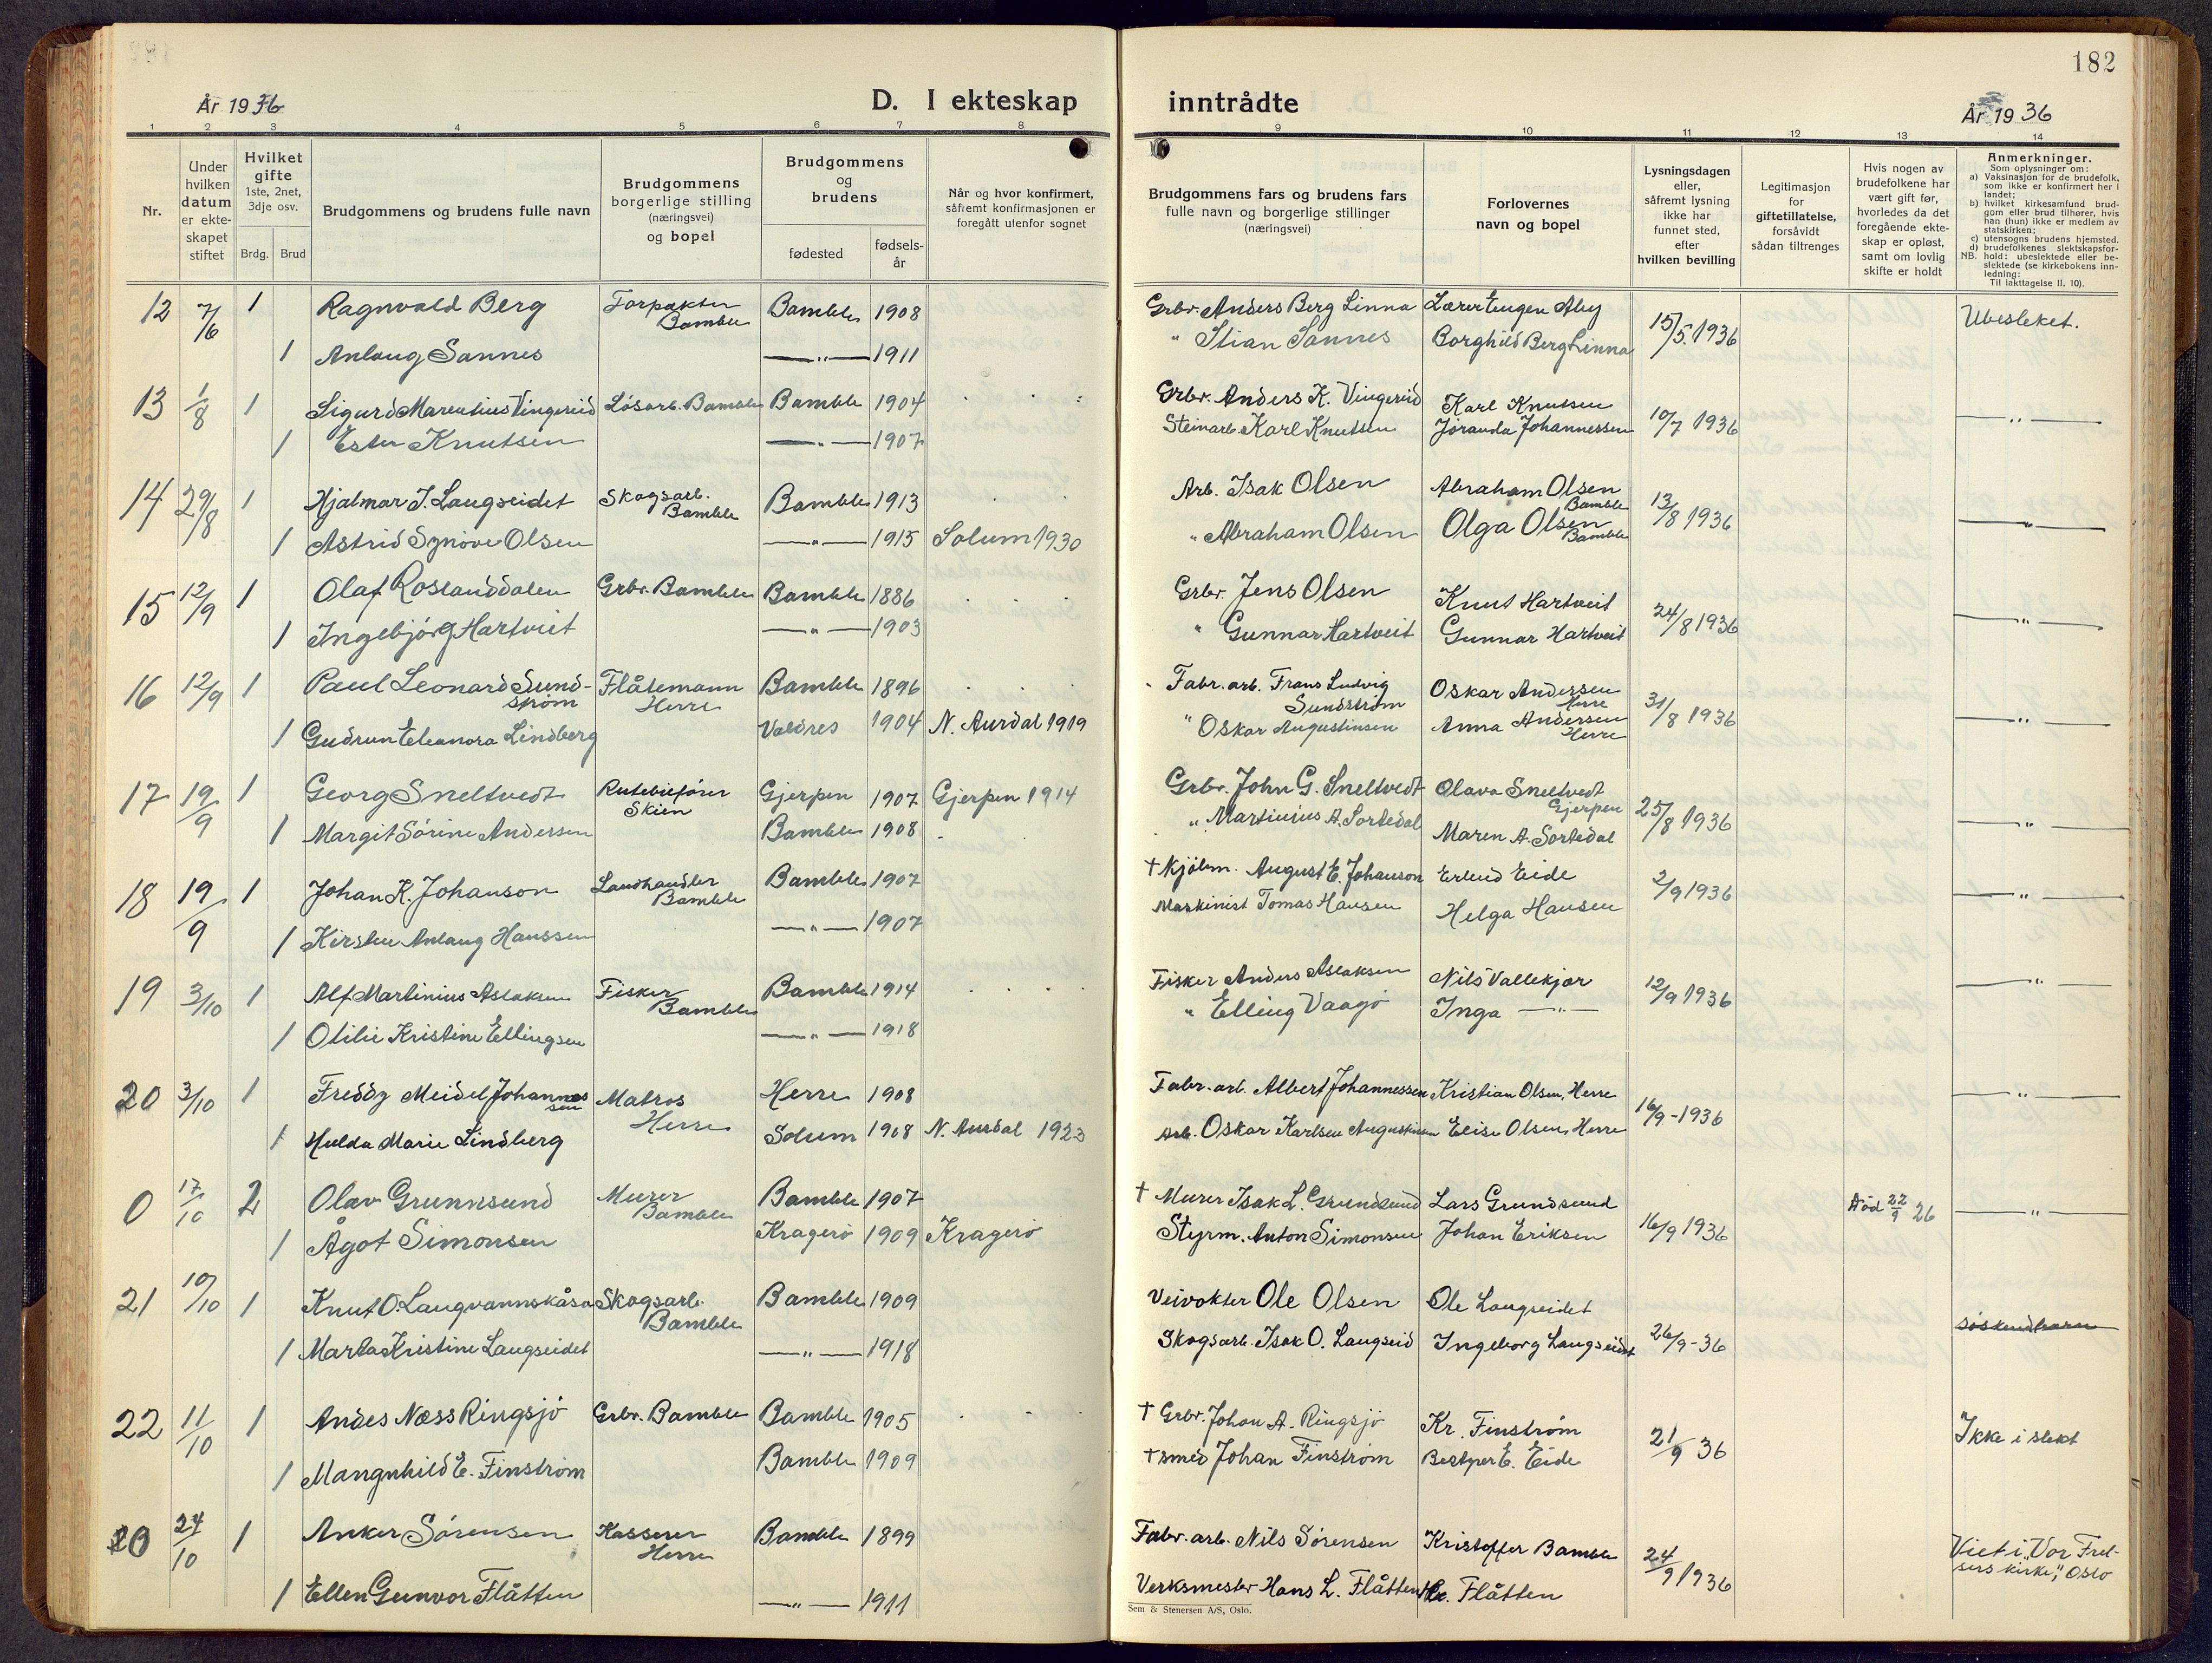 182
År 1936
D. I ekteskap inntrådte
År 1936
1 2 3 4 5 6 7 8 9 10 11 12 13 14
Nr.
Under hvilken datum er ekteskapet stiftet
Hvilket gifte 1ste, 2net, 3dje osv.
Brdg. Brud
Brudgommens og brudens fulle navn
Brudgommens borgerlige stilling (næringsvei) og bopel
Brudgommens og brudens
fødested
fødselsår
Når og hvor konfirmert, såfremt konfirmasjonen er foregått utenfor sognet
Brudgommens fars og brudens fars fulle navn og borgerlige stillinger (næringsvei)
Forlovernes navn og bopel
Lysningsdagen eller, såfremt lysning ikke har funnet sted, efter hvilken bevilling
Legitimasjon for giftetillatelse, forsåvidt sådan tiltrenges
Hvis nogen av brudefolkene har vært gift før, hvorledes da det foregående ekteskap er opløst, samt om lovlig skifte er holdt
Anmerkninger.
Som oplysning om:
a) Vaksinasjon for de brudefolk, som ikke er konfirmert her i landet;
b) hvilket kirkesamfund brudgom eller brud tilhører, hvis han (hun) ikke er medlem av statskirken;
c) utensogns brudens hjemsted.
d) brudefolkenes slektskapsforhold: ubeslektede eller beslektede (se kirkebokens innledning:
NB.
Til iakttagelse II. 10).
12 7/6 1 Ragnvald Berg Forpakter Bamble Bamble 1908 Grbr. Anders Berg Linna Lærer Eugen Aby 15/5. 1936 Ubesleket.
1 Anlaug Sannes —"— 1911 " Stian Sannes Borghild Berg Linna
13 1/8 1 Sigurd Marentius Vingereid Løsarb. Bamble Bamble 1904 Grbr. Anders K. Vingereid Karl Knutsen 10/7 1936 —"—
1 Ester Knutsen —"— 1907 Steinarb. Karl Knutsen Joranda Johannessen
14 29/8 1 Hjalmar J. Laugseidet Skogsarb. Bamble Bamble 1913 Arb. Isak Olsen Abraham Olsen Bamble 13/8 1936 —"—
1 Astrid Synøve Olsen —"— 1915 Solum 1930 " Abraham Olsen Olga Olsen Bamble
15 12/9 1 Olaf Roslanddalen Grbr. Bamble Bamble 1886 Grbr. Jens Olsen Knut Hartveit 24/8 1936 —"—
1 Ingebjørg Hartveit —"— 1903 " Gunnar Hartveit Gunnar Hartveit
16 12/9 1 Paul Leonard Sundstrøm Flåtemann Herre Bamble 1896 Fabr. arb. Frans Ludvig Sundstrøm Oskar Andersen Herre 31/8 1936 —"—
1 Gudrun Eleanora Lindberg Valdres 1904 N. Aurdal 1919 " Oskar Augustinsen Anna Andersen Herre
17 19/9 1 Georg Sneltvedt Rutebilfører Skien Gjerpen 1907 Gjerpen 1914 Grbr. John G. Sneltvedt Olava Sneltvedt Gjerpen 25/8 1936 —"—
1 Margit Sørine Andersen Bamble 1908 " Martinius A. Sortedal Maren A. Sortedal
18 19/9 1 Johan K. Johanson Landhandler Bamble Bamble 1907 † Kjøbm. August E. Johanson Erlend Eide 2/9 1936 —"—
1 Kirsten Anlaug Hanssen —"— 1907 Maskinist Tomas Hansen Helga Hansen
19 3/10 1 Alf Martinius Aslaksen Fisker Bamble Bamble 1914 Fisker Anders Aslaksen Nils Vallekjær 12/9 1936 —"—
1 Otilie Kristine Ellingsen —"— 1918 " Elling Vaagø Inga —"—
20 3/10 1 Freddy Meidel Johannessen Matros Herre Herre 1908 Fabr. arb. Albert Johannessen Kristian Olsen, Herre 16/9-1936 —"—
1 Hulda Marie Lindberg Solum 1908 N. Aurdal 1923 Arb. Oskar Karlsen Augustinsen Elise Olsen, Herre
0 17/10 2 Olav Grunnsund Murer Bamble Bamble 1907 † Murer Isak L. Grundsund Lars Grundsund 16/9 1936 Død 22/9 26 —"—
1 Ågot Simonsen Kragerø 1909 Kragerø Styrm. Anton Simonsen Johan Eriksen
21 10/10 1 Knut O. Laugvannskåsa Skogsarb. Bamble Bamble 1909 Veivokter Ole Olsen Ole Laugseidet 26/9-36 søskendbarn
1 Marta Kristine Laugseidet —"— 1918 Skogsarb. Isak O. Laugseid Ingeborg Laugseidet
22 11/10 1 Andes Næss Ringsjø Grbr. Bamble Bamble 1905 † Grbr. Johan A. Ringsjø Kr. Finstrøm 21/9 36 Ikke i slekt
1 Mangnhild E. Finstrøm Bamble 1909 † smed Johan Finstrøm Bestyrer E. Eide
0 24/10 1 Anker Sørensen Kasserer Herre Bamble 1899 Fabr. arb. Nils Sørensen Kristoffer Bamble 24/9 1936 Viet i "Vor Frelsers kirke," Oslo
1 Ellen Gunvor Flåtten —"— 1911 Verksmester Hans L. Flåtten Flåtten
Sem & Stenersen A/S, Oslo.